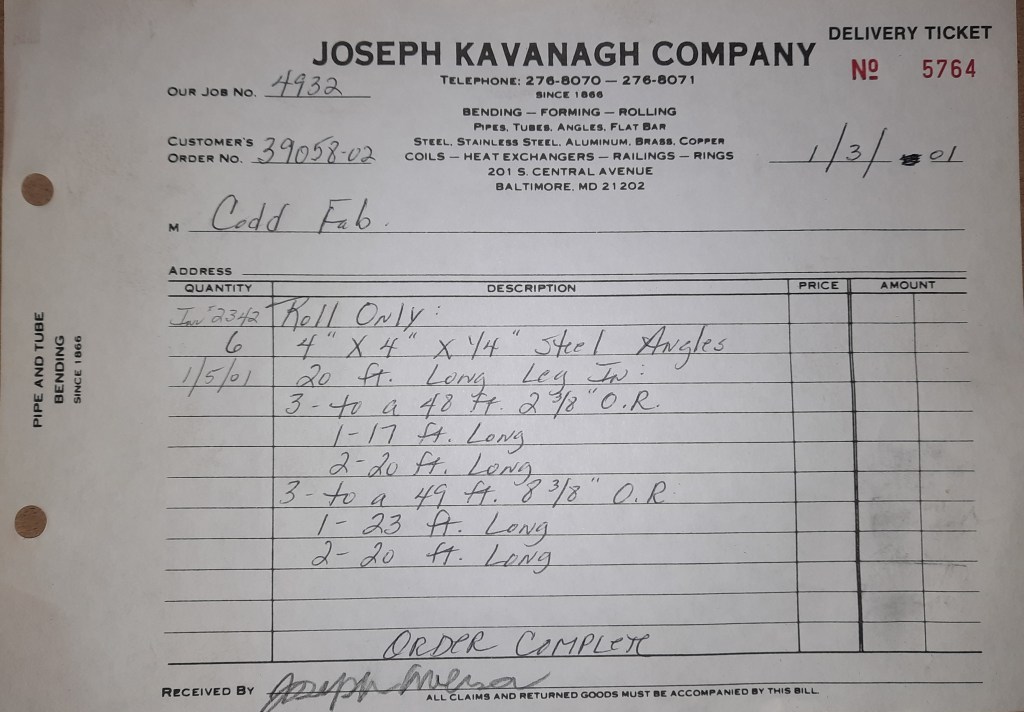 DELIVERY TICKET
JOSEPH KAVANAGH COMPANY
Nº 5764
TELEPHONE: 276-8070 — 276-8071
SINCE 1866
OUR JOB NO. 4932
BENDING — FORMING — ROLLING
PIPES, TUBES, ANGLES, FLAT BAR
CUSTOMER'S
ORDER NO. 39058-02
STEEL, STAINLESS STEEL, ALUMINUM, BRASS, COPPER
COILS — HEAT EXCHANGERS — RAILINGS — RINGS
1/3/ 01
201 S. CENTRAL AVENUE
BALTIMORE, MD 21202
M Codd Fab.
ADDRESS
QUANTITY DESCRIPTION PRICE AMOUNT
Inv# 2342 Roll Only:
6 4" X 4" X 1/4" Steel Angles
1/5/01 20 ft. Long Leg In:
3- to a 48 ft. 2 3/8" O.R.
1-17 ft. Long
2-20 ft. Long
3- to a 49 ft. 8 3/8" O.R
1- 23 ft. Long
2- 20 ft. Long
ORDER COMPLETE
RECEIVED BY Joseph
ALL CLAIMS AND RETURNED GOODS MUST BE ACCOMPANIED BY THIS BILL.
PIPE AND TUBE
BENDING
SINCE 1866